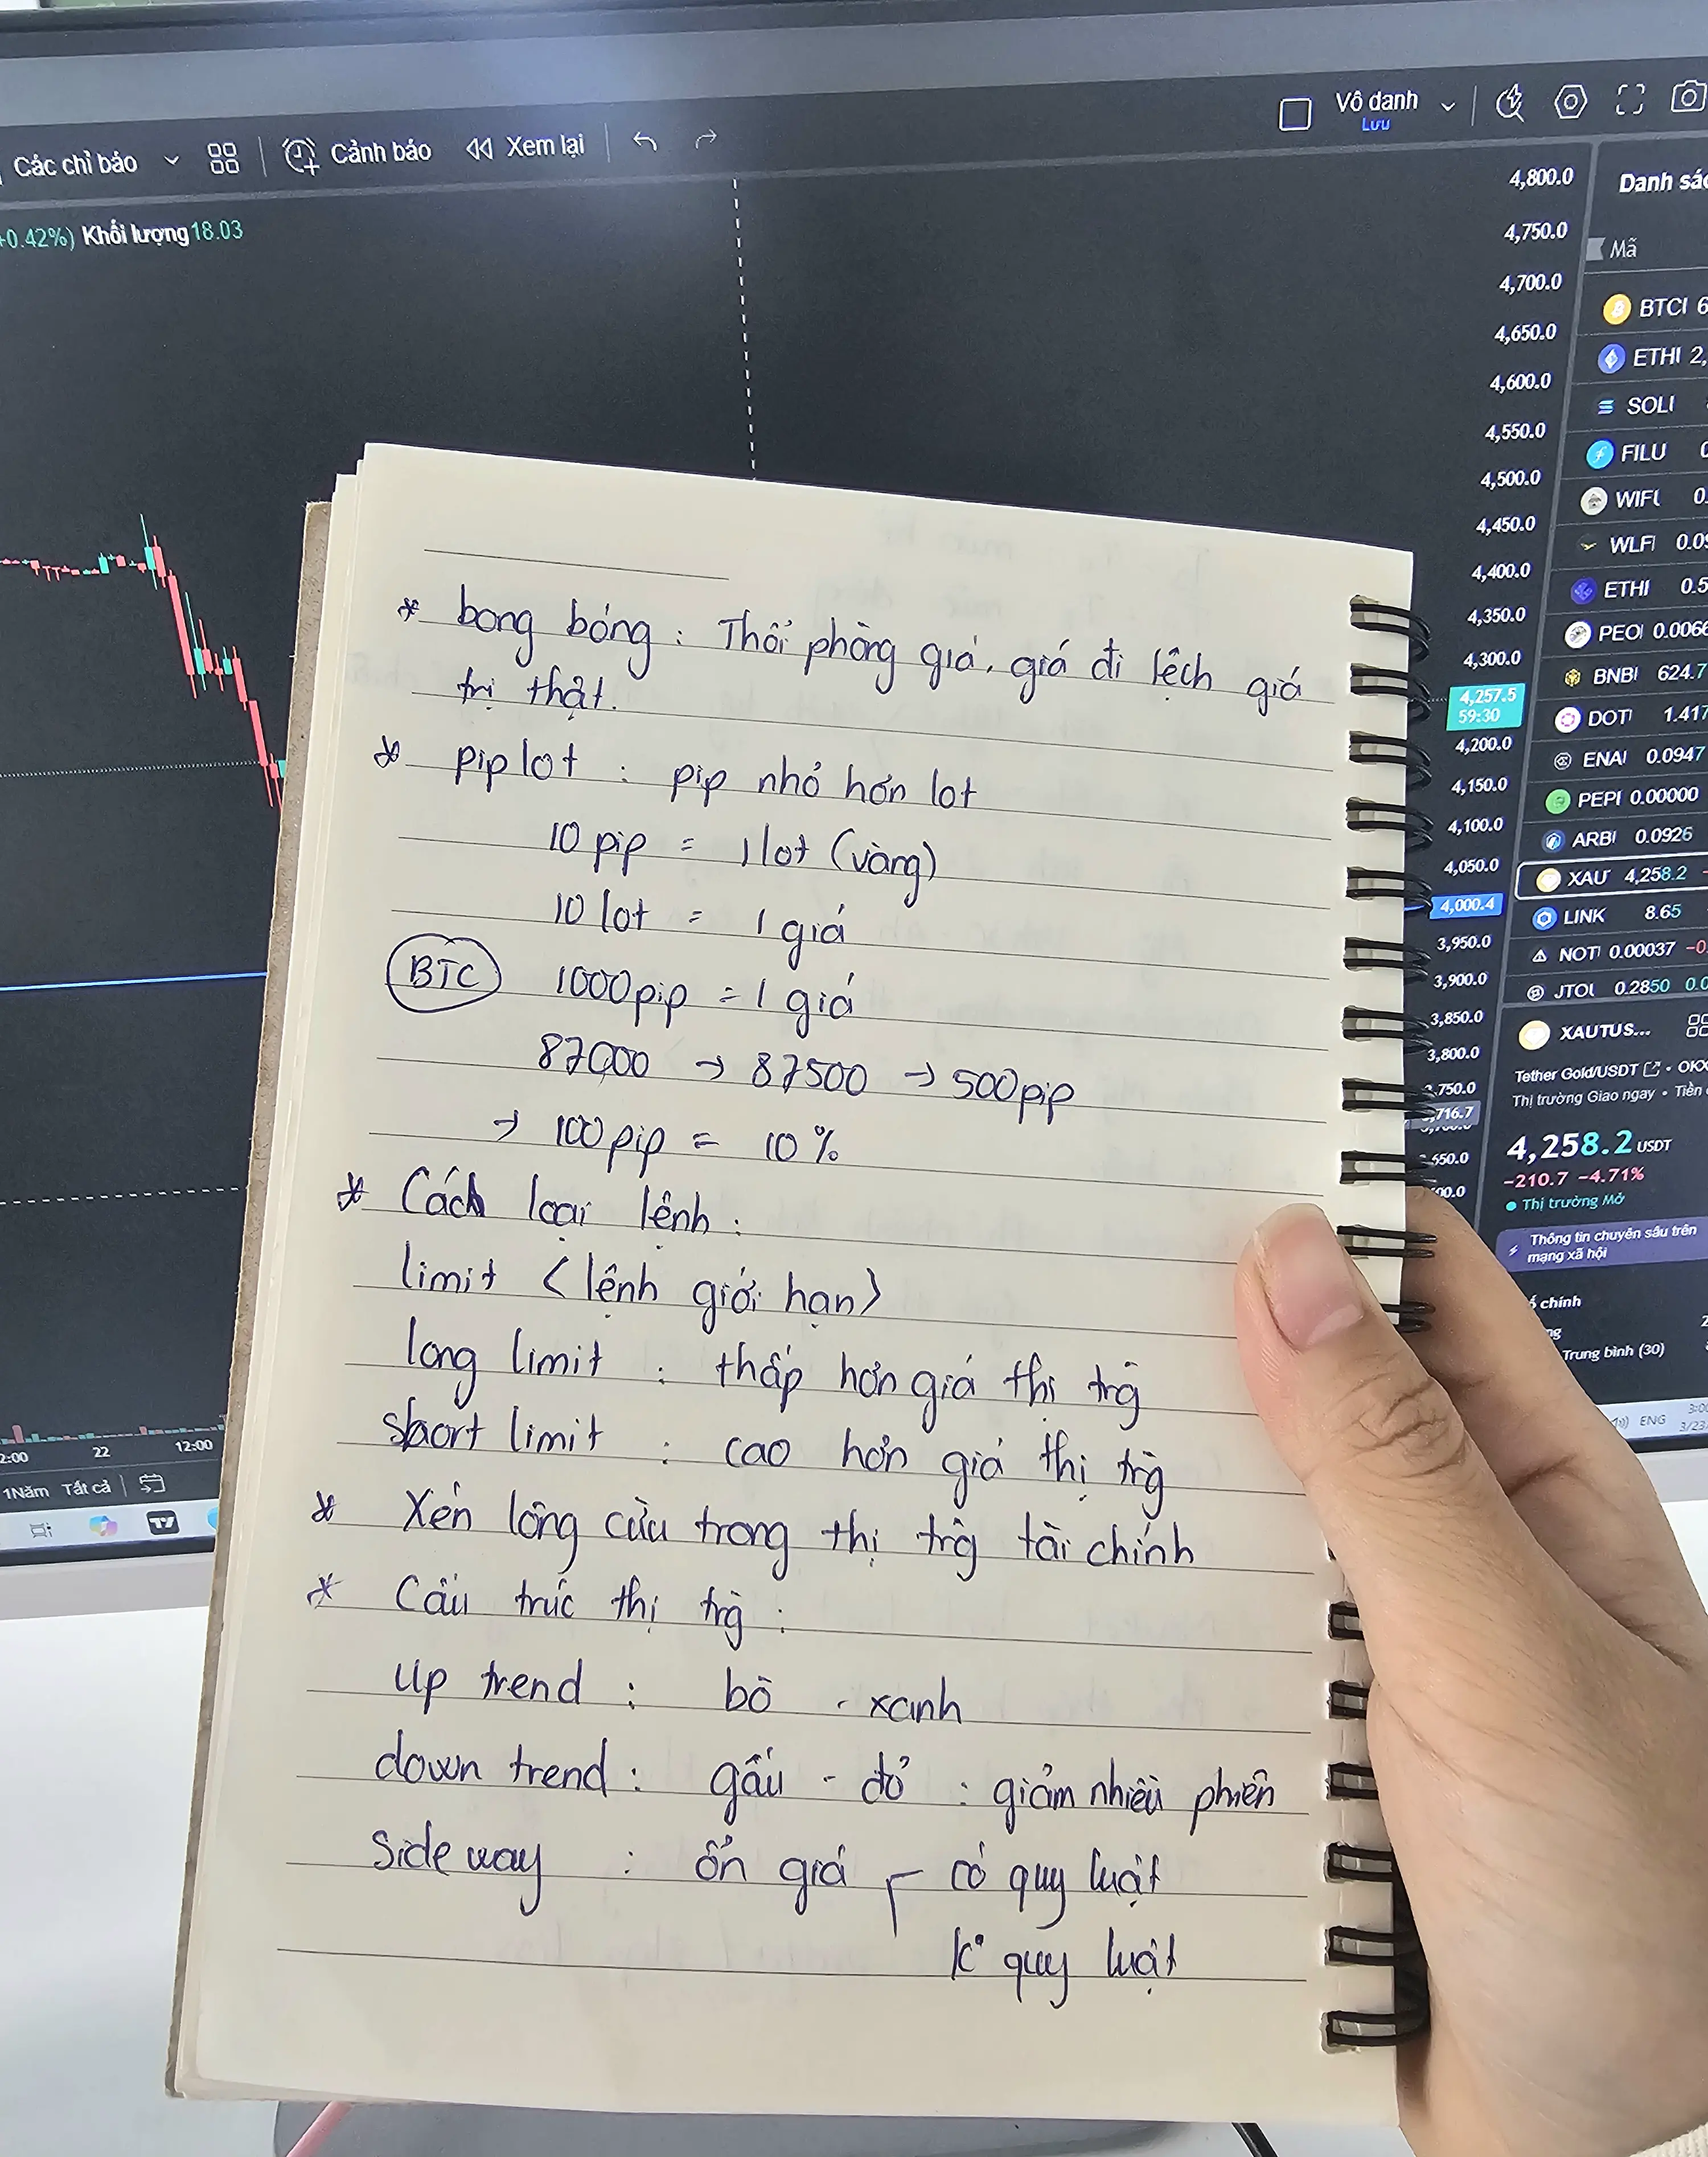 Các chỉ báo
Cảnh báo
Xem lại
Vô danh
Lưu
+0.42%) Khối lượng 18.03
4,800.0
4,750.0
4,700.0
4,650.0
4,600.0
4,550.0
4,500.0
4,450.0
4,400.0
4,350.0
4,300.0
4,257.5
59:30
4,200.0
4,150.0
4,100.0
4,050.0
4,000.4
3,950.0
3,900.0
3,850.0
3,800.0
Mã
BTC
ETH 2,
SOL
FILU
WIF 0.
WLF 0.09
ETH 0.5
PEO 0.0066
BNB 624.7
DOT 1.417
ENA 0.0947
PEP 0.00000
ARB 0.0926
XAU 4,258.2
LINK 8.65
NOT 0.00037
JTO 0.2850
XAUTUS...
Tether Gold/USDT
Thị trường Giao ngay
4,258.2 USDT
-210.7 -4.71%
Thị trường Mở
Thông tin chuyên sâu trên
mạng xã hội
chính
Trung bình (30)
ENG
* bong bóng : Thổi phồng giá, giá đi lệch giá
trị thật.
* pip lot : pip nhỏ hơn lot
10 pip = 1 lot (vàng)
10 lot = 1 giá
BTC 1000pip = 1 giá
87000 → 87500 → 500pip
→ 100pip = 10%
* Cách loại lệnh :
limit <lệnh giới hạn>
long limit : thấp hơn giá thị trg
short limit : cao hơn giá thị trg
* Xén lông cừu trong thị trg tài chính
* Cấu trúc thị trg :
Up trend : bò - xanh
down trend : gấu - đỏ : giảm nhiều phiên
Side way : ổn giá có quy luật
k° quy luật
22
12:00
1Năm Tất cả